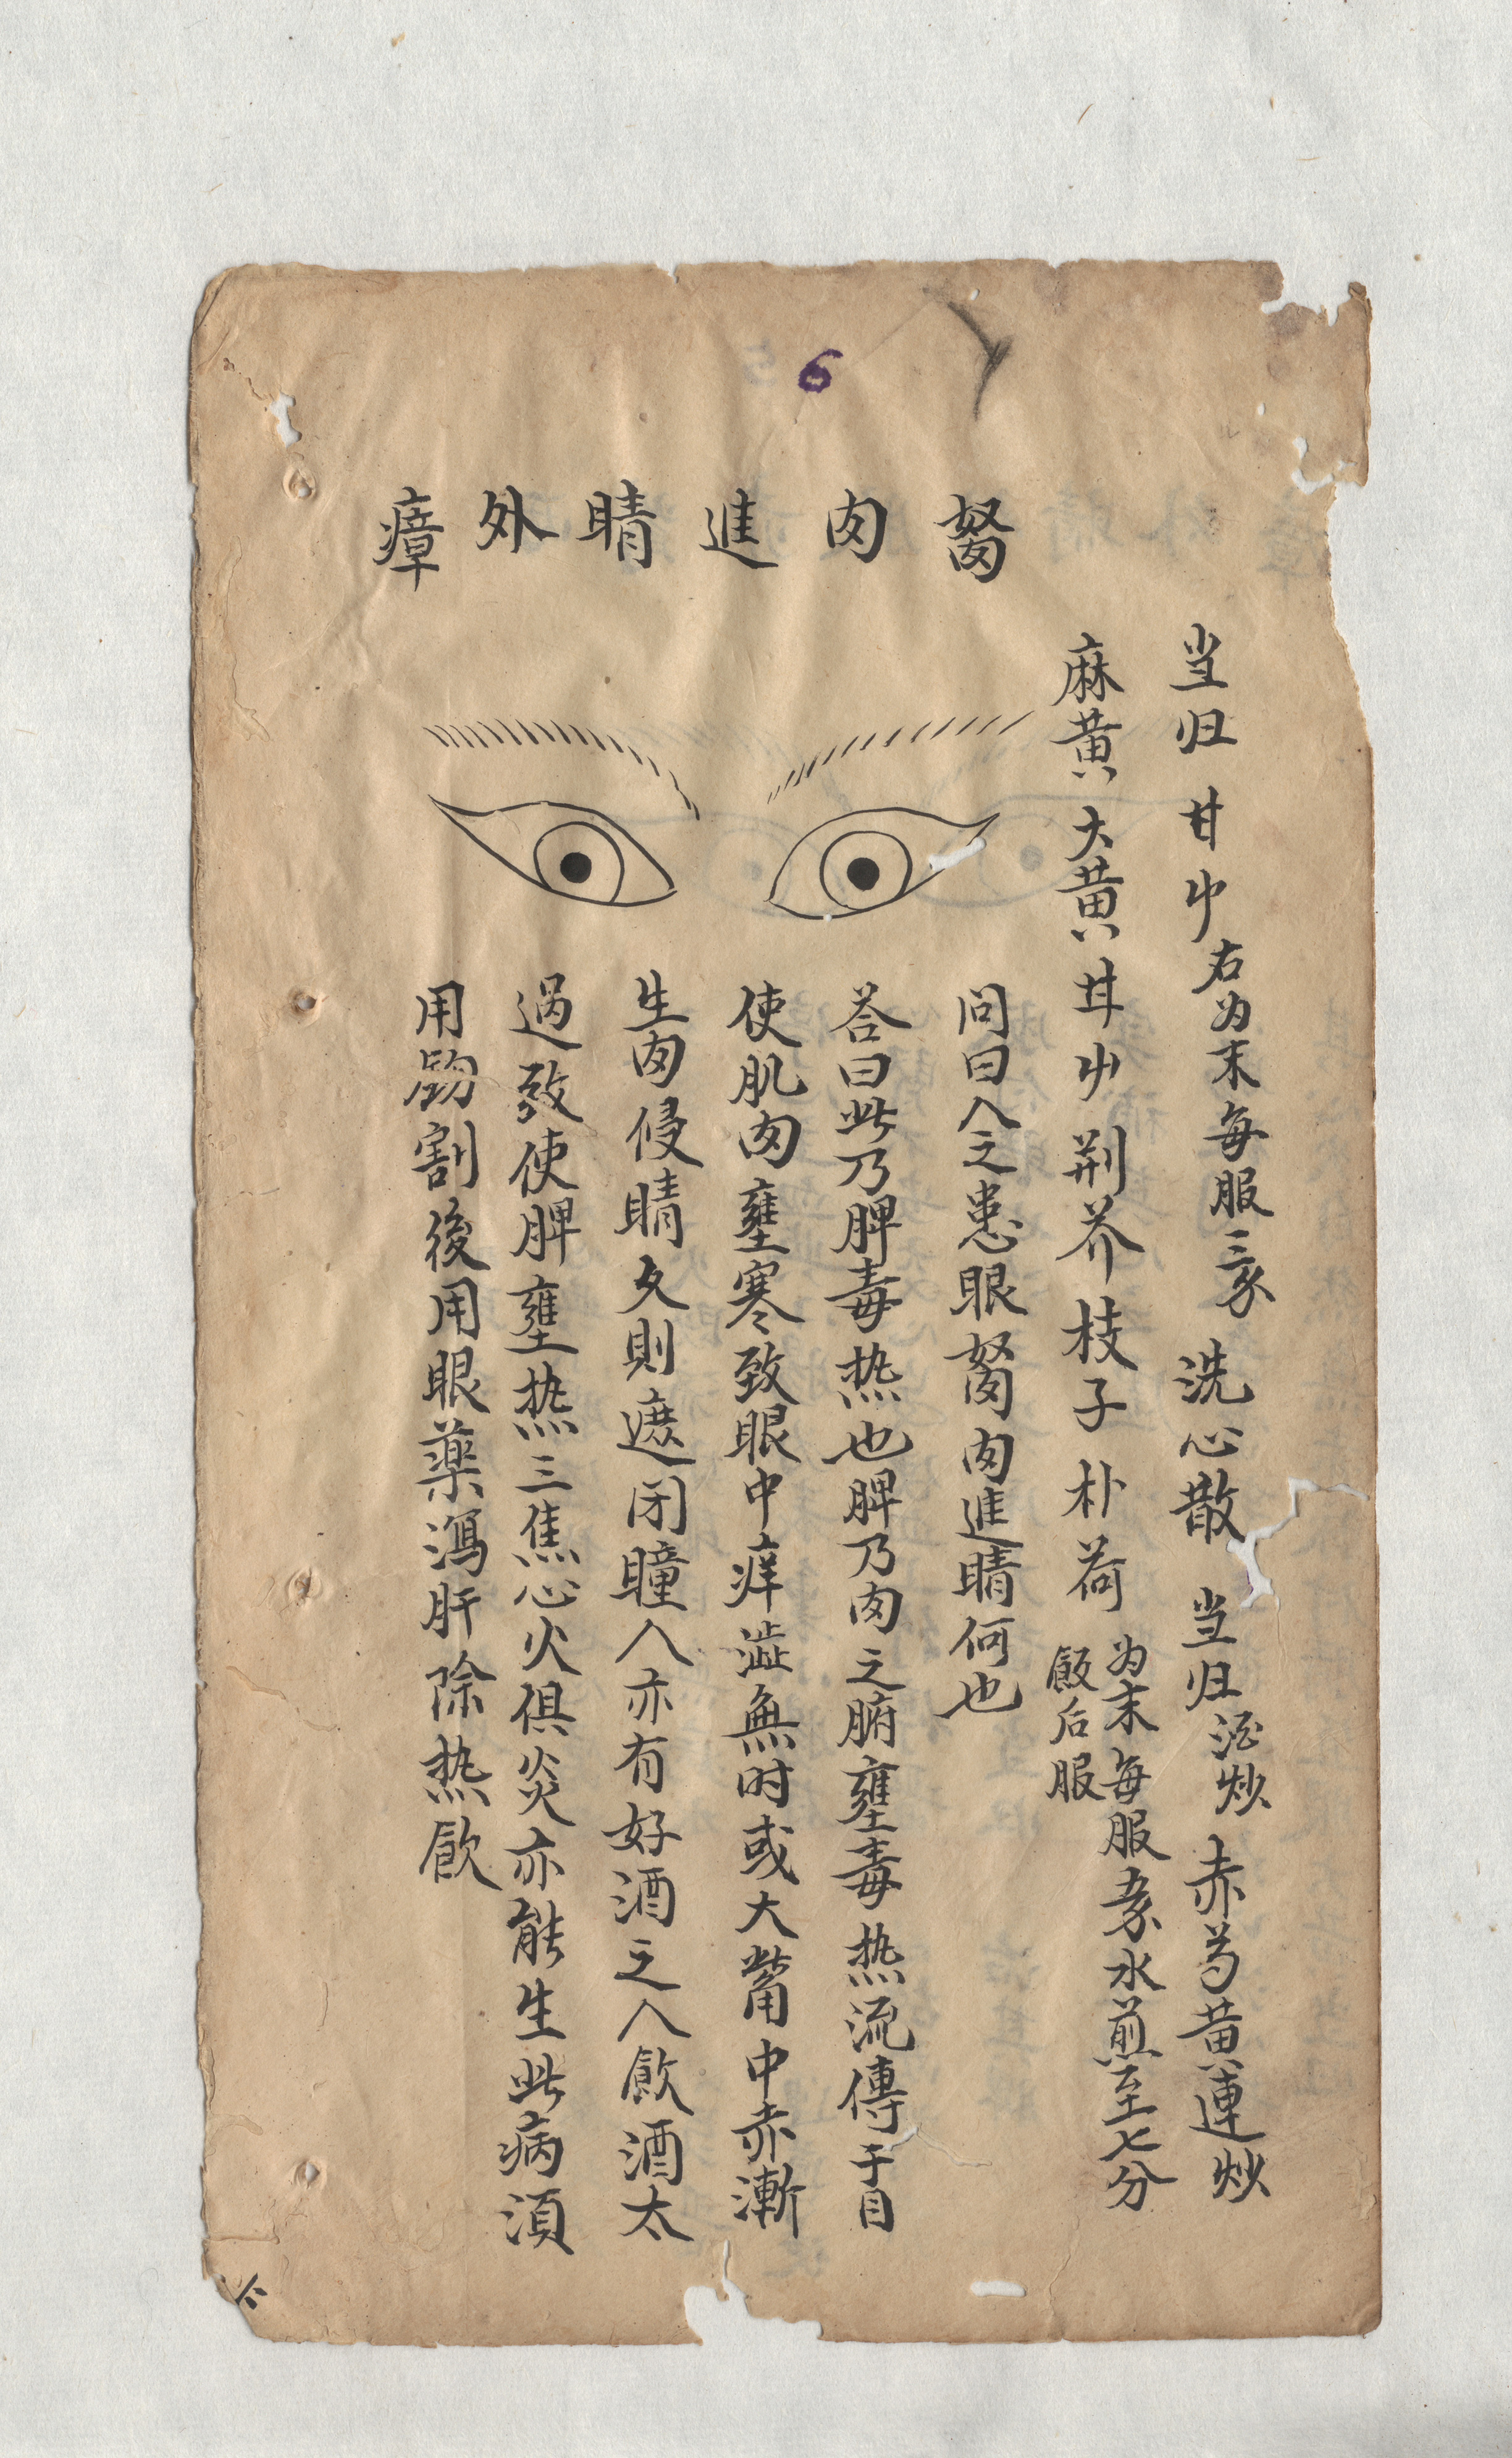 6
当归 甘屮 右为末每服三㒸 洗心散 当归 酒炒 赤芍 黄連 炒
麻黄 大黄 甘屮 荆芥 枝子 朴荷 为末每服㒸水煎至七分
飯后服
胬肉進睛外瘴
問曰人之患眼胬肉進睛何也
荅曰此乃脾毒热也脾乃肉之腑壅毒热流傳于目
使肌肉壅寒致眼中痒澁無时或大觜中赤漸
生肉侵睛久則遮闭瞳人亦有好酒之人飲酒太
過致使脾壅热三焦心火俱炎亦能生此病湏
用鈎割後用眼藥瀉肝除热飲